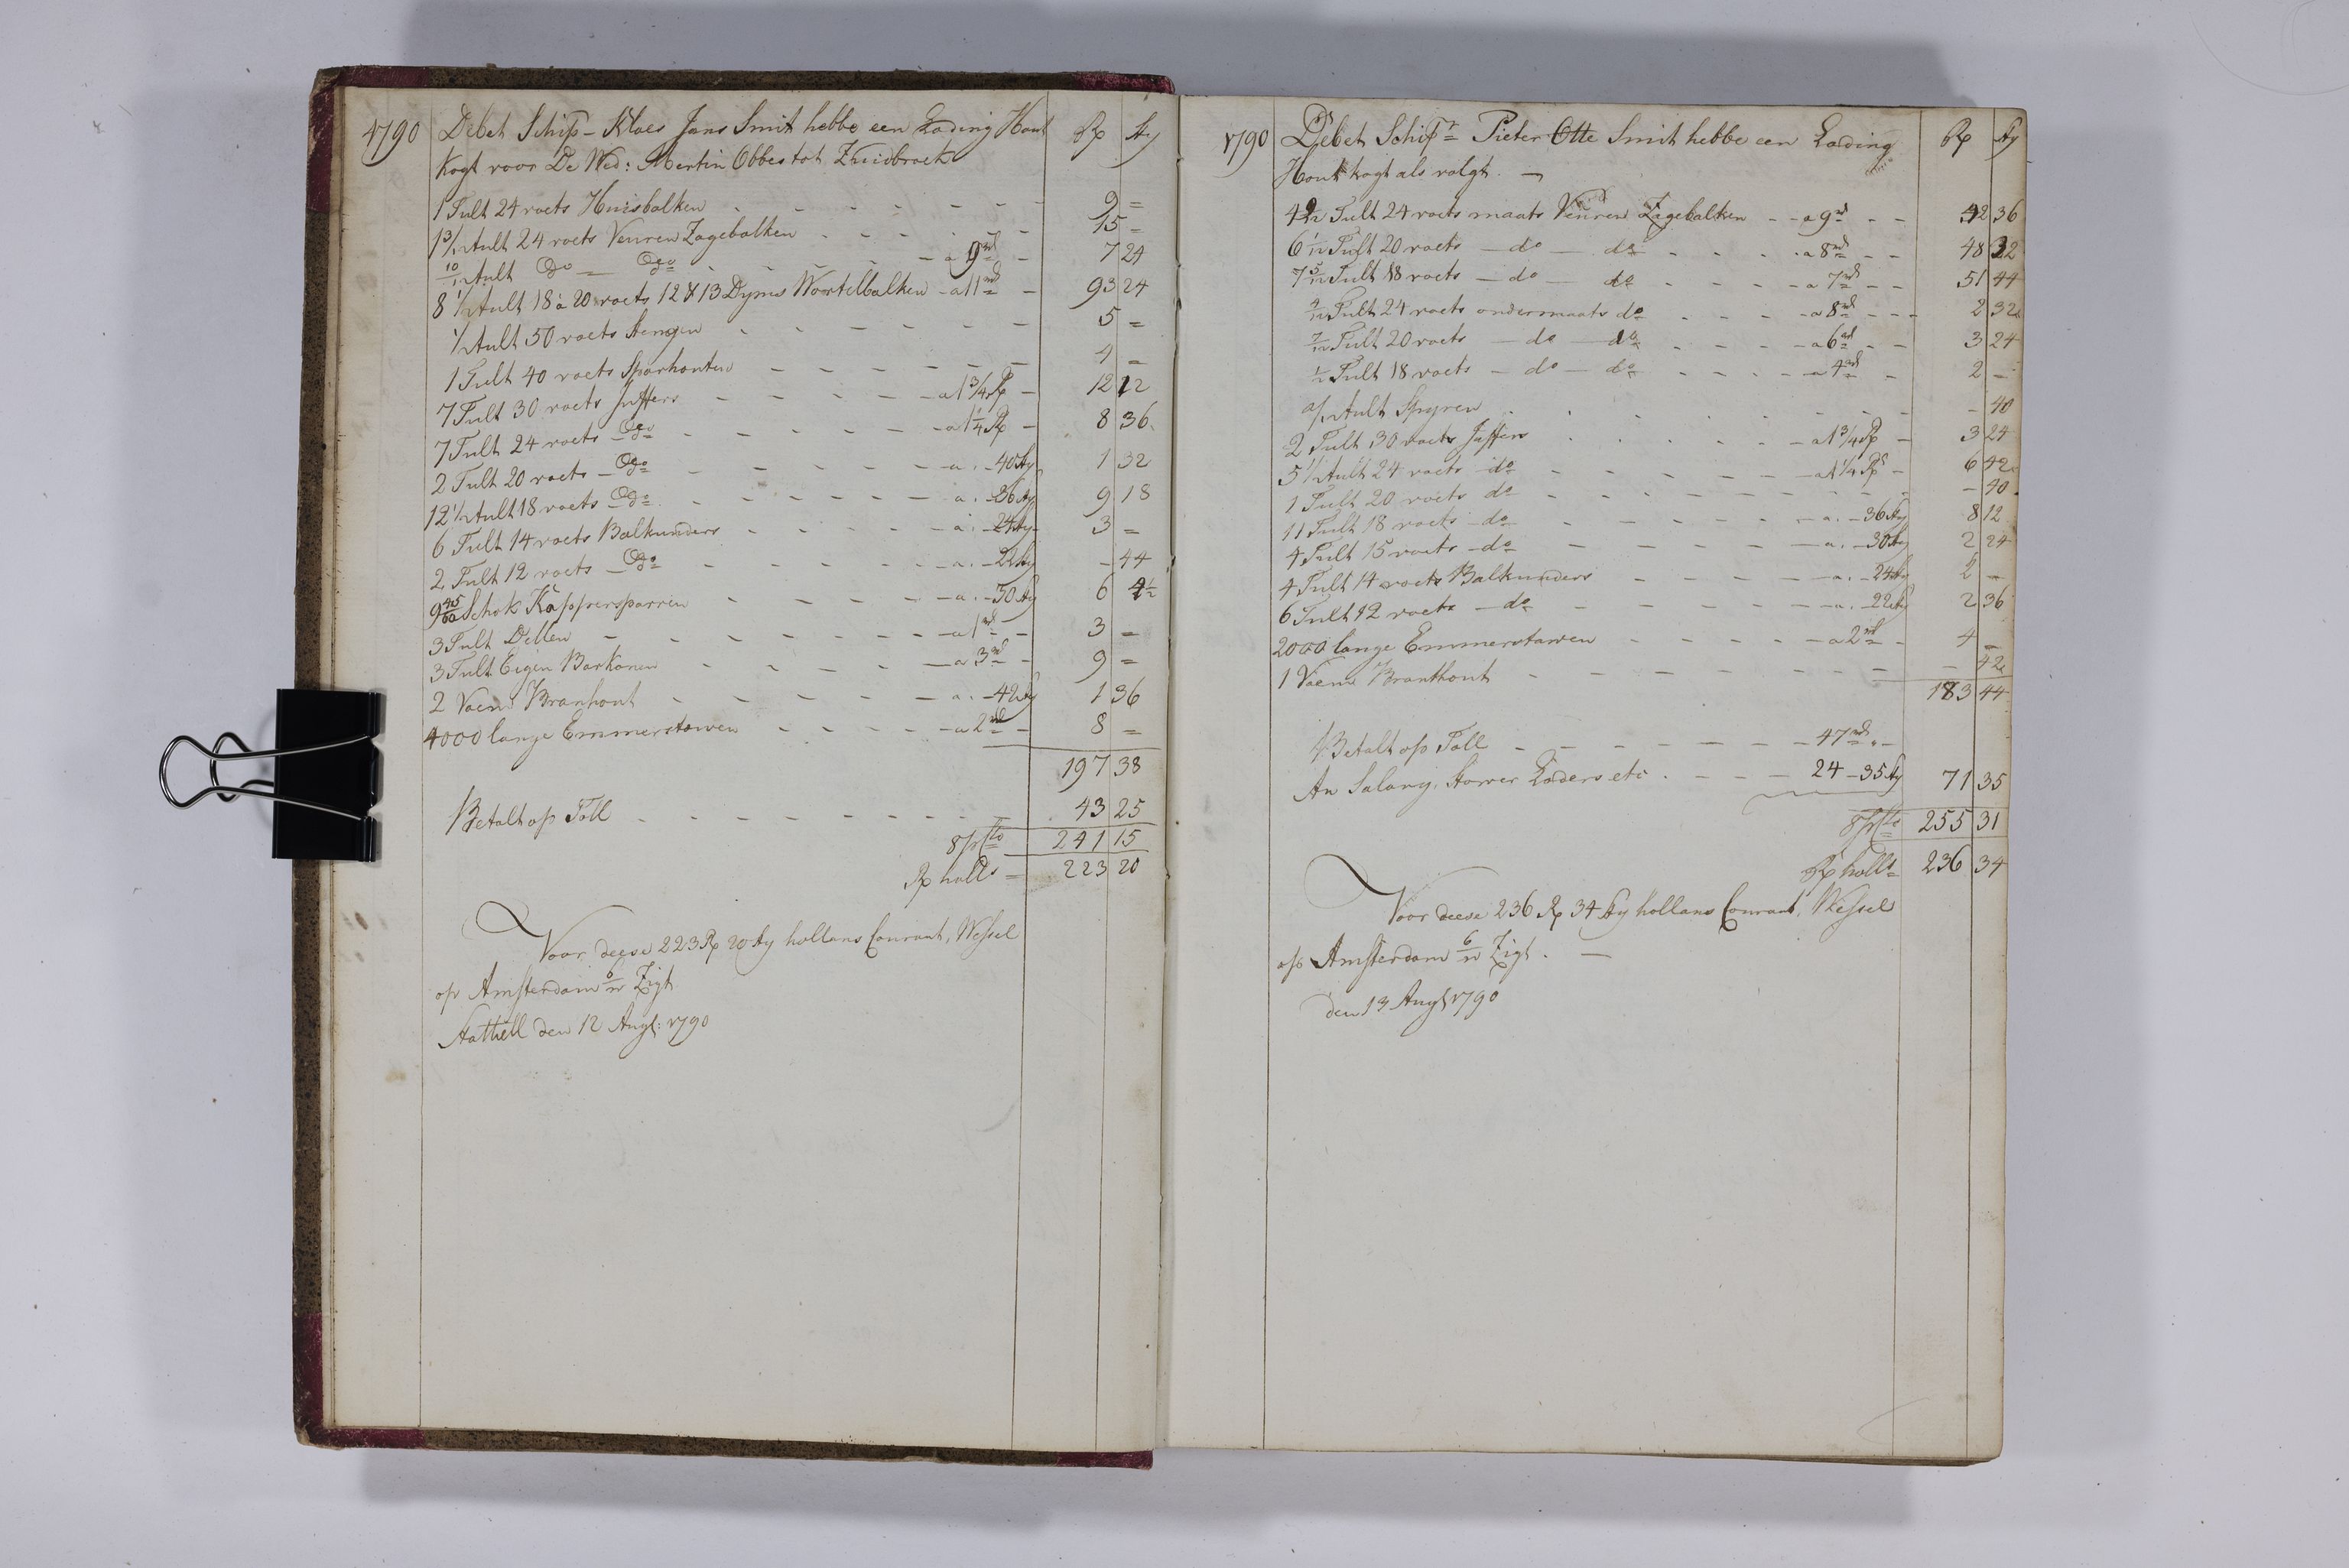 1790 Debet Schip- Klaes Jans Smit hebbe een Lading Hout Rx Sty
kogt voor De Wed: Mertin Obbes tot Zuidbroek
1 Tult 24 voets Huisbalken - - - 9 =
1 3/4 Tult 24 voets Veuren Zagebalken - - - 15 =
10/12 Tult Ogo - Ogo - - a 9 rd - 7 24
8 1/2 Tult 18 a 20 voets 12 & 13 Dyms Wortelbalken - a 11 rd - 93 24
1/2 Tult 50 voets Stengen - - - 5 =
1 Tult 40 voets Sparhouten - - - 4 =
7 Tult 30 voets Juffers - - - a 1 3/4 Rx - 12 12
7 Tult 24 voets - Ogo - - - a 1 1/4 Rx - 8 36
2 Tult 20 voets - Ogo - - - a . - 40 Sty 1 32
12 1/2 Tult 18 voets Ogo - - - a . - 36 Sty 9 18
6 Tult 14 voets Balkunders - - - a . - 24 Sty 3 =
2 Tult 12 voets - Ogo - - - a . - 22 Sty - 44
9 45/60 Schok Kappersparren - - - a . - 30 Sty 6 4 1/2
3 Tult Dellen - - - a 1 rd - 3 =
3 Tult Eigen Barkonen - - - a 3 rd - 9 =
2 Vaem Branhout - - - a . - 42 Sty 1 36
4000 lange Emmerstawen - - - a 2 rd - 8 =
197 38
Betalt op Toll - - - 43 25
8 pr Cto 241 15
Rx holls = 223 20
Voor deese 223 Rx 20 Sty hollans Courant, Wessel
op Amsterdam 6/w Zigt
den 12 Augt: 1790
1790 Debet Schipr = Pieter Otte Smit hebbe een Lading Rx Sty
Hout kogt als volgt. -
4 9/12 Tult 24 voets maats Veuren Zagebalken - - a 9 rd - - 42 36
6 1/12 Tult 20 voets - do - do - - - a 8 rd - - 48 32
7 5/12 Tult 18 voets - do - do - - - a 7 rd - - 51 44
4/12 Tult 24 voets ondermaats do - - - a 8 rd - - - 2 32
7/12 Tult 20 voets - do - do - - - a 6 rd - - 3 24
1/2 Tult 18 voets - do - do - - - a 4 rd - 2 -
Tult Spyren - - - - 40
2 Tult 30 voets Juffers - - - a 1 3/4 Rx - 3 24
5 1/2 Tult 24 voets - do - - - a 1 1/4 Rx - 6 42
1 Tult 20 voets do - - - - 40
11 Tult 18 voets - do - - - a . - 36 Sty 8 12
4 Tult 15 voets - do - - - a . - 30 Sty 2 24
4 Tult 14 voets Balkunders - - - a . - 24 Sty 2 -
6 Tult 12 voets - do - - - a . - 22 Sty 2 36
2000 lange Emmerstawen - - - a 2 rd - 4 -
1 Vaem Branthout - - - - 42
183 44
Betalt op Toll - - - 47 rd . -
An Salary, Stower Laders etc . - - - 24 - 35 Sty 71 35
8 pr Cto 255 31
Rx holls = 236 34
Voor deese 236 Rx 34 Sty hollans Courant, Wessel
op Amsterdam 6/w Zigt . -
den 13 Augt 1790